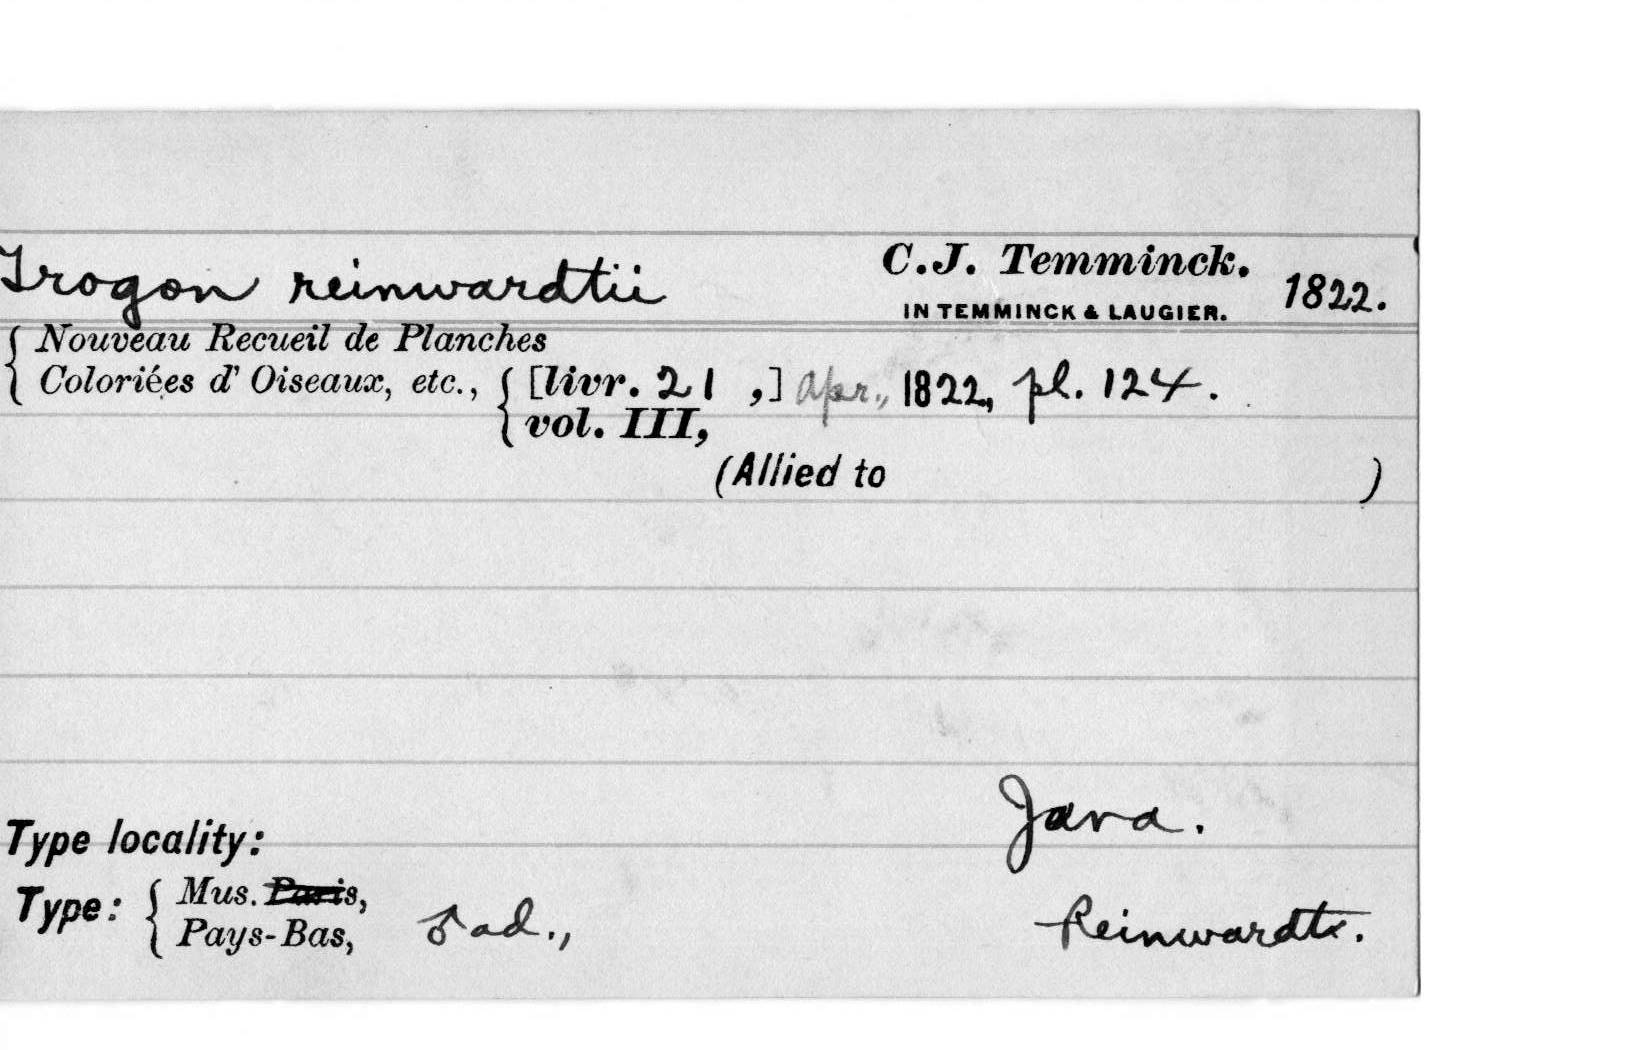 Trogon reinwardtii C.J. Temminck. 1822.
IN TEMMINCK & LAUGIER.
Nouveau Recueil de Planches
Coloriées d' Oiseaux, etc., [livr. 21 ,] Apr., 1822, pl. 124.
vol. III,
(Allied to )
Java.
Type locality:
Type: Mus. Paris,
Pays-Bas, ♂ ad., Reinwardt.